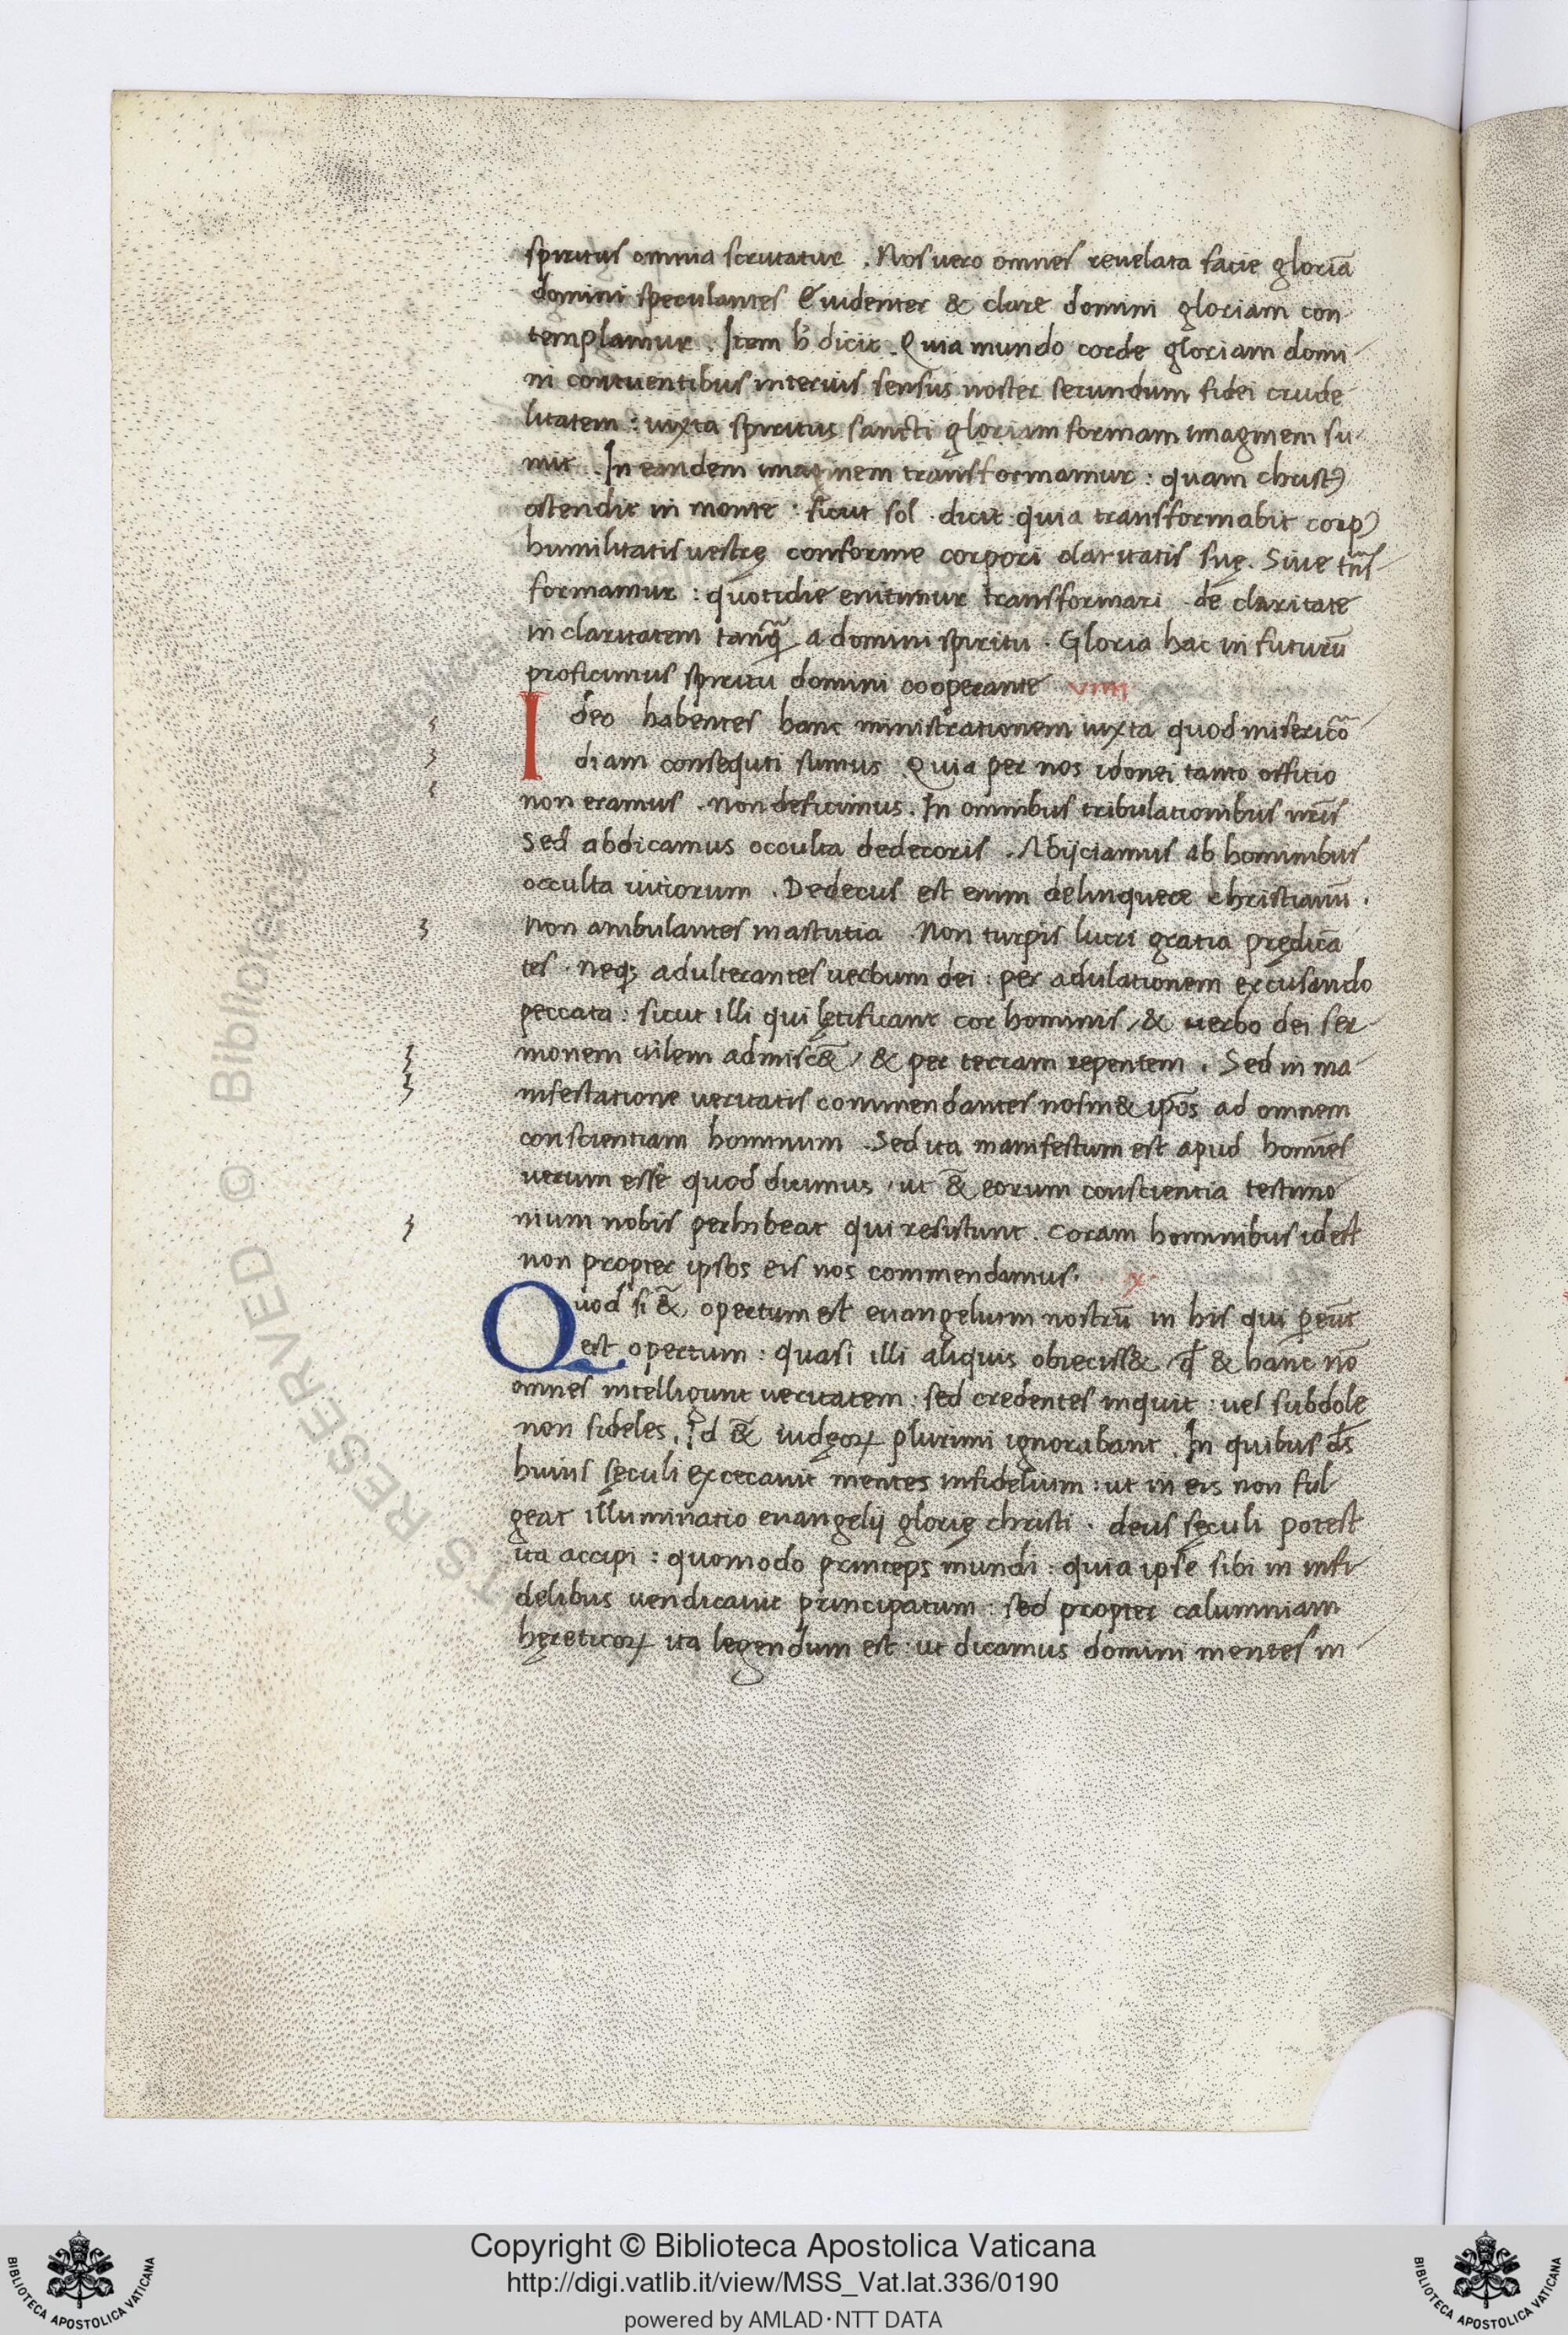 spiritus omnia scrutatur . Nos uero omnes reuelata facie gloriā
domini speculantes Euidenter & clare domini gloriam con
templamur . Item b' dicit . Quia mundo corde gloriam domi
ni contuentibus interius sensus noster secundum fidei crude
litatem : iuxta spiritus sancti gloriam formam imaginem su
mit . In eandem imaginem transformamur : quam christꝰ
ostendit in monte : sicut sol . dicit quia transformabit corpꝰ
humilitatis uestrę conforme corpori claritatis suę . Siue trās
formamur : quotidie enitimur transformari . de claritate
in claritatem tanq̃ a domini spiritu . Gloria hac in futurū
proficimus spiritu domini cooperante VIIII
Ideo habentes hanc ministrationem iuxta quod misericō
diam consequti sumus . Quia per nos idonei tanto officio
non eramus . non deficimus . In omnibus tribulationibus nr̄is
Sed abdicamus occulta dedecoris . Abijciamus ab hominibus
occulta uitiorum . Dedecus est enim delinquere christianū .
Non ambulantes in astutia . Non turpis lucri gratia prędicā
tes . neqꝫ adulterantes uerbum dei : per adulationem excusando
peccata : sicut illi qui lętificant cor hominis / & uerbo dei ser
monem uilem admisc&̄ / & per terram repentem . Sed in ma
nifestatione ueritatis commendantes nosm& ip̄os ad omnem
conscientiam hominum . Sed ita manifestum est apud homīes
uerum esse quod dicimus , ut &̄ eorum conscientia testimo
nium nobis perhibeat qui resistunt . coram hominibus id est
non propter ipsos eis nos commendamus . X
Quod si &̄ opertum est euangelium nostrū in his qui pereūt
est opertum : quasi illi aliquis obiecisset& / qđ & hanc nō
omnes intelligunt ueritatem : sed credentes inquit : uel subdole
non fideles . Id &̄ iudęoꝝ plurimi ignorabant . In quibus d̄s
huius sęculi excecauit mentes infidelium : ut in eis non ful
geat illuminatio euangelij glorię christi . deus sęculi potest
ita accipi : quomodo princeps mundi : quia ipse sibi in infi
delibus uendicauit principatum : sed propter calumniam
hęreticoꝝ ita legendum est : ut dicamus domini mentes in
© Biblioteca Apostolica
RESERVED
Copyright © Biblioteca Apostolica Vaticana
http://digi.vatlib.it/view/MSS_Vat.lat.336/0190
powered by AMLAD·NTT DATA
BIBLIOTECA APOSTOLICA VATICANA
BIBLIOTECA APOSTOLICA VATICANA